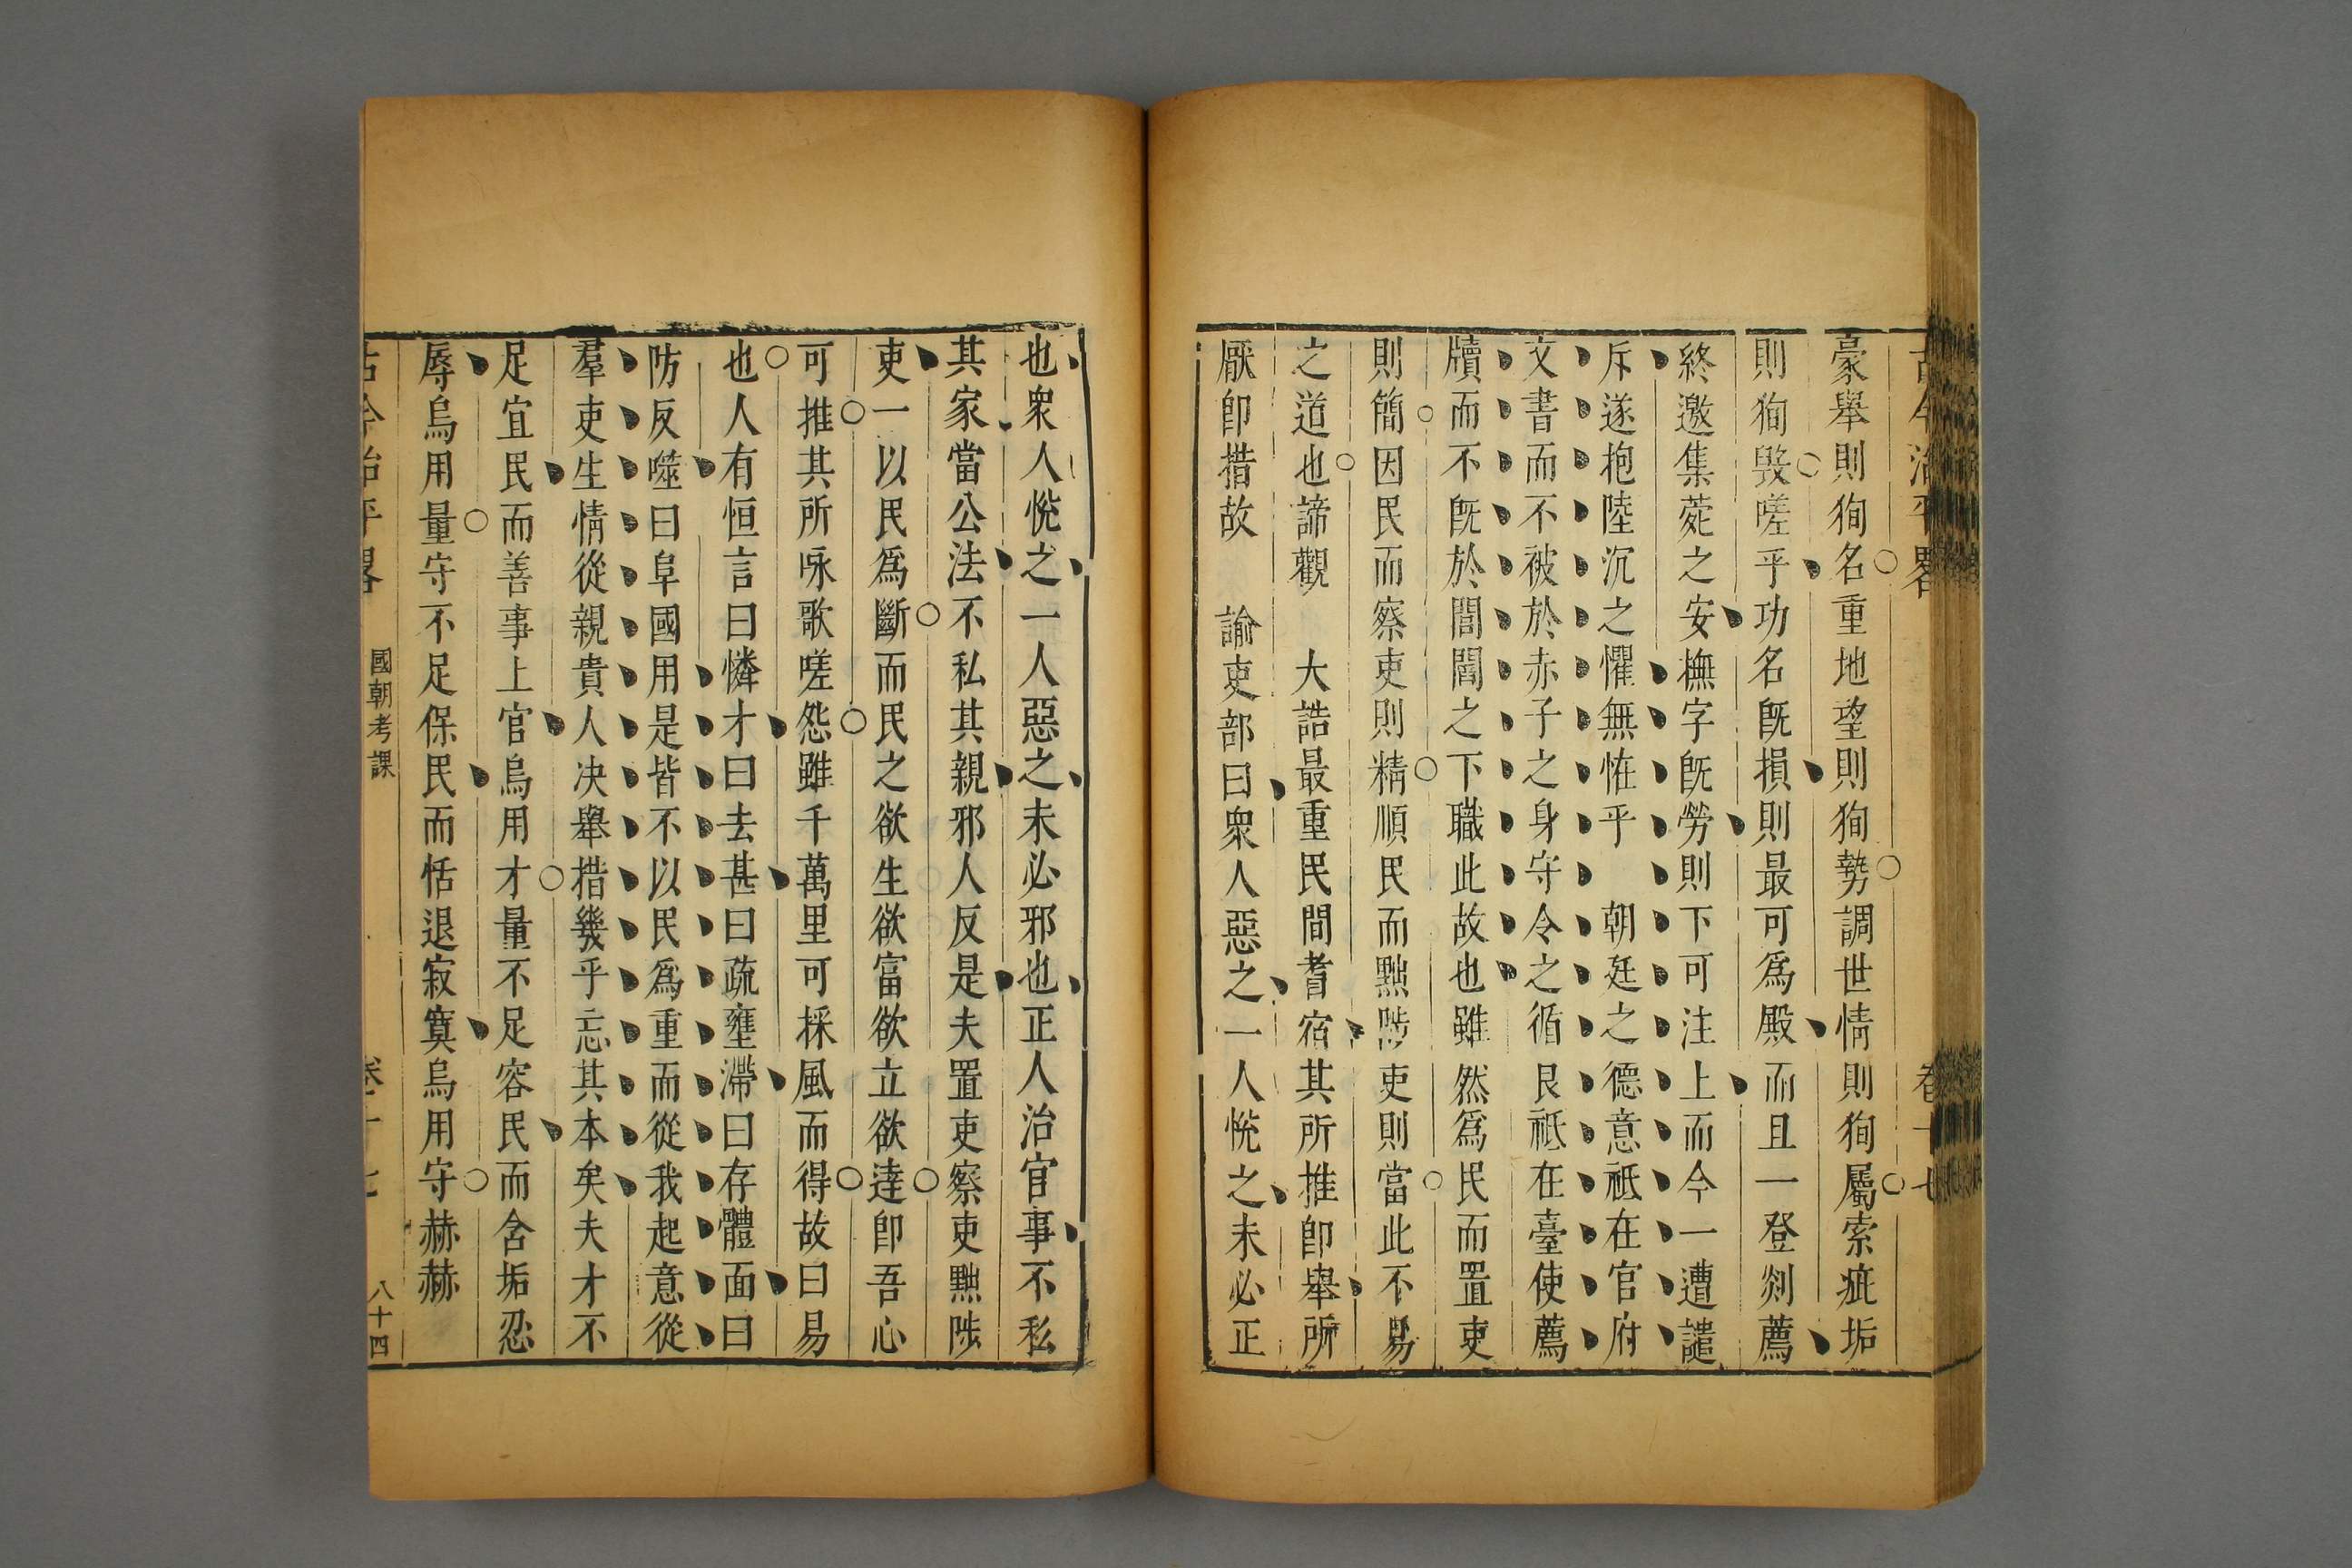 古今治平畧 卷十七
豪舉則狥名重地望則狥勢調世情則狥屬索疵垢
則狥毀嗟乎功名旣損則最可爲殿而且一登剡薦
終邀集菀之安撫字旣勞則下可注上而今一遭譴
斥遂抱陸沉之懼無恠乎 朝廷之德意祗在官府
文書而不被於赤子之身守令之循良祗在臺使薦
牘而不旣於閭閻之下職此故也雖然爲民而置吏
則簡因民而察吏則精順民而黜陟吏則當此不易
之道也諦觀 大誥最重民間耆宿其所推卽舉所
厭卽措故 諭吏部曰衆人惡之一人悅之未必正
也衆人悅之一人惡之未必邪也正人治官事不私
其家當公法不私其親邪人反是夫置吏察吏黜陟
吏一以民爲斷而民之欲生欲富欲立欲達卽吾心
可推其所咏歌嗟怨雖千萬里可採風而得故曰易
也人有恒言曰憐才曰去甚曰疏壅滯曰存體面曰
防反噬曰阜國用是皆不以民爲重而從我起意從
羣吏生情從親貴人决舉措幾乎忘其本矣夫才不
足宜民而善事上官烏用才量不足容民而含垢忍
辱烏用量守不足保民而恬退寂寞烏用守赫赫
古今治平畧 國朝考課 卷十七 八十四